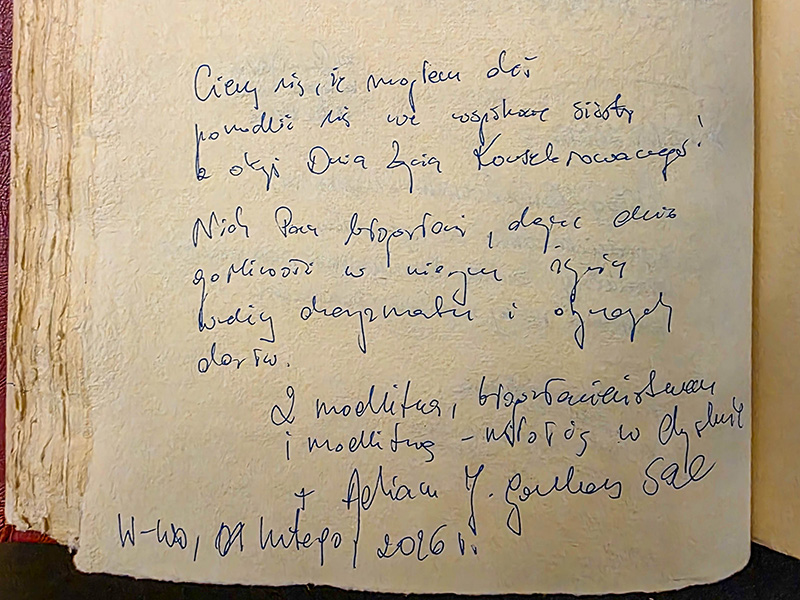 Cieszę się, że mogłem dziś
pomodlić się we wspólnocie sióstr
z okazji Dnia Życia Konsekrowanego!
Niech Pan błogosławi, dając dużo
gorliwości w niesieniu życia
według charyzmatu i otrzymanych
darów.
Z modlitwą, błogosławieństwem
i modlitwą - miłością w
+ Adrian J. Galbas SAC
W-wa, 01 lutego, 2026 r.